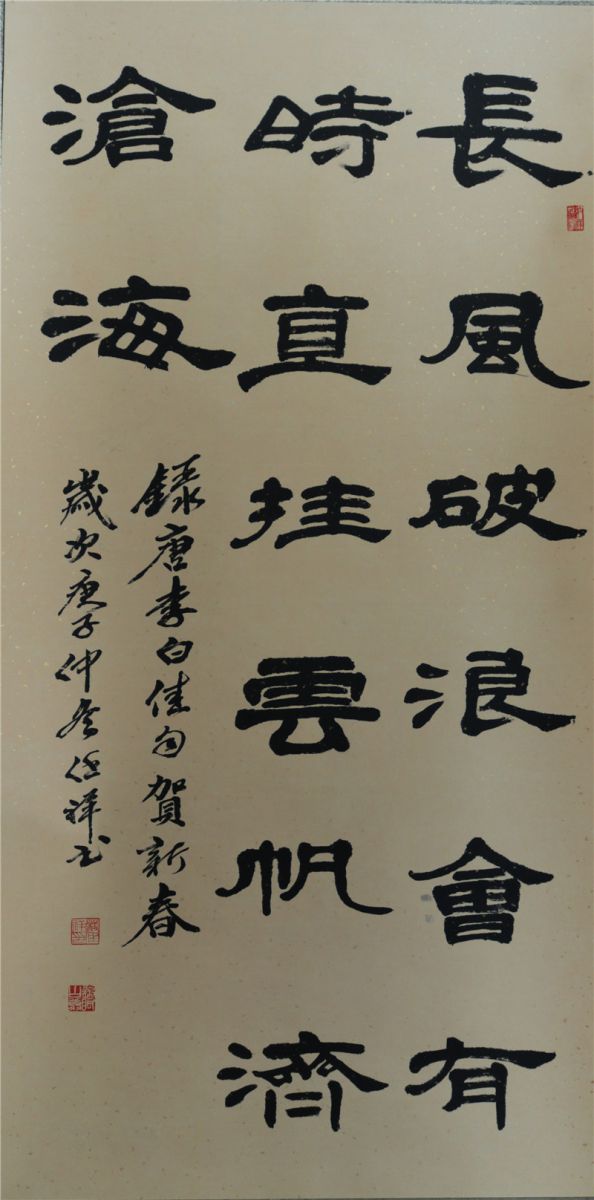 長風破浪會有
時直挂雲帆濟
滄海
録唐李白佳句賀新春
歲次庚子仲冬祥书